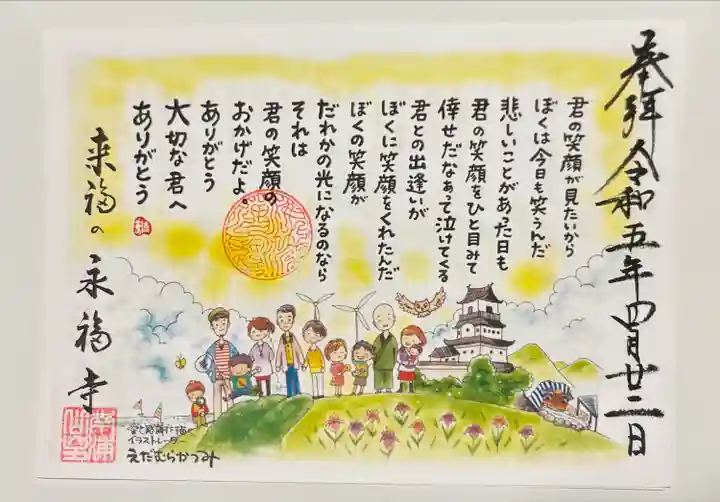 奉拝 令和五年四月廿二日
君の笑顔が見たいから
ぼくは今日も笑うんだ
悲しいことがあった日も
君の笑顔をひと目みて
倖せだなぁって泣けてくる
君との出逢いが
ぼくに笑顔をくれたんだ
ぼくの笑顔が
だれかの光になるのなら
それは
君の笑顔の
おかげだよ。
ありがとう
大切な君へ
ありがとう
来福の永福寺
イラストレーター
えだむらかつみ